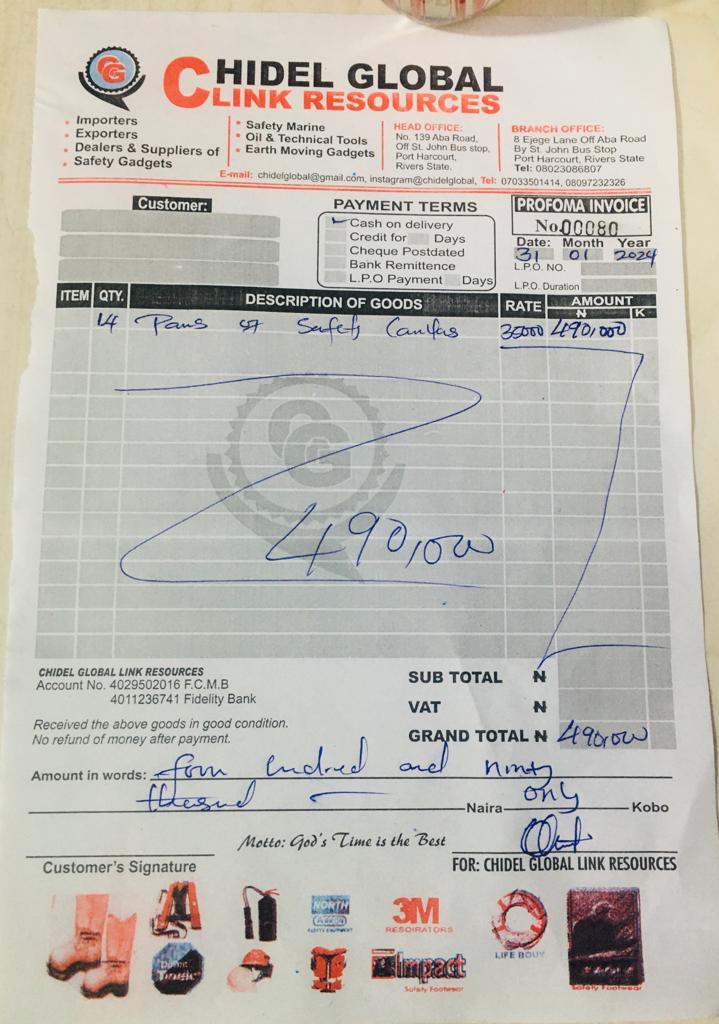 CHIDEL GLOBAL
LINK RESOURCES
• Importers
• Exporters
• Dealers & Suppliers of
• Safety Gadgets
• Safety Marine
• Oil & Technical Tools
• Earth Moving Gadgets
HEAD OFFICE:
No. 139 Aba Road,
Off St. John Bus stop,
Port Harcourt,
Rivers State.
BRANCH OFFICE:
8 Ejege Lane Off Aba Road
By St. John Bus Stop
Port Harcourt, Rivers State
Tel: 08023086807
E-mail: chidelglobal@gmail.com, instagram@chidelglobal, Tel: 07033501414, 08097232326
Customer:
PAYMENT TERMS
Cash on delivery
Credit for Days
Cheque Postdated
Bank Remittance
L.P.O Payment Days
PROFOMA INVOICE
No.00080
Date: Month Year
31 01 2024
L.P.O. NO.
L.P.O. Duration
ITEM QTY. DESCRIPTION OF GOODS RATE AMOUNT
₦ K
14 Safety 35000 490,000
490,000
CHIDEL GLOBAL LINK RESOURCES
Account No. 4029502016 F.C.M.B
4011236741 Fidelity Bank
Received the above goods in good condition.
No refund of money after payment.
SUB TOTAL ₦
VAT ₦
GRAND TOTAL ₦ 490,000
Amount in words: four hundred and ninty
thousand Naira only Kobo
Motto: God's Time is the Best
Customer's Signature
FOR: CHIDEL GLOBAL LINK RESOURCES
NORTH
3M
RESQIRATORS
LIFE BOUY
Impact
Safety Footwear
Safety Footwear